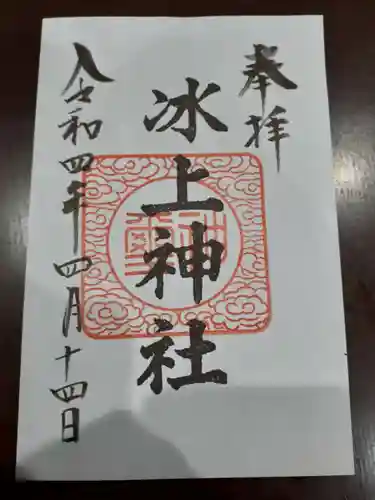 奉拝
氷上神社
令和四年四月十四日